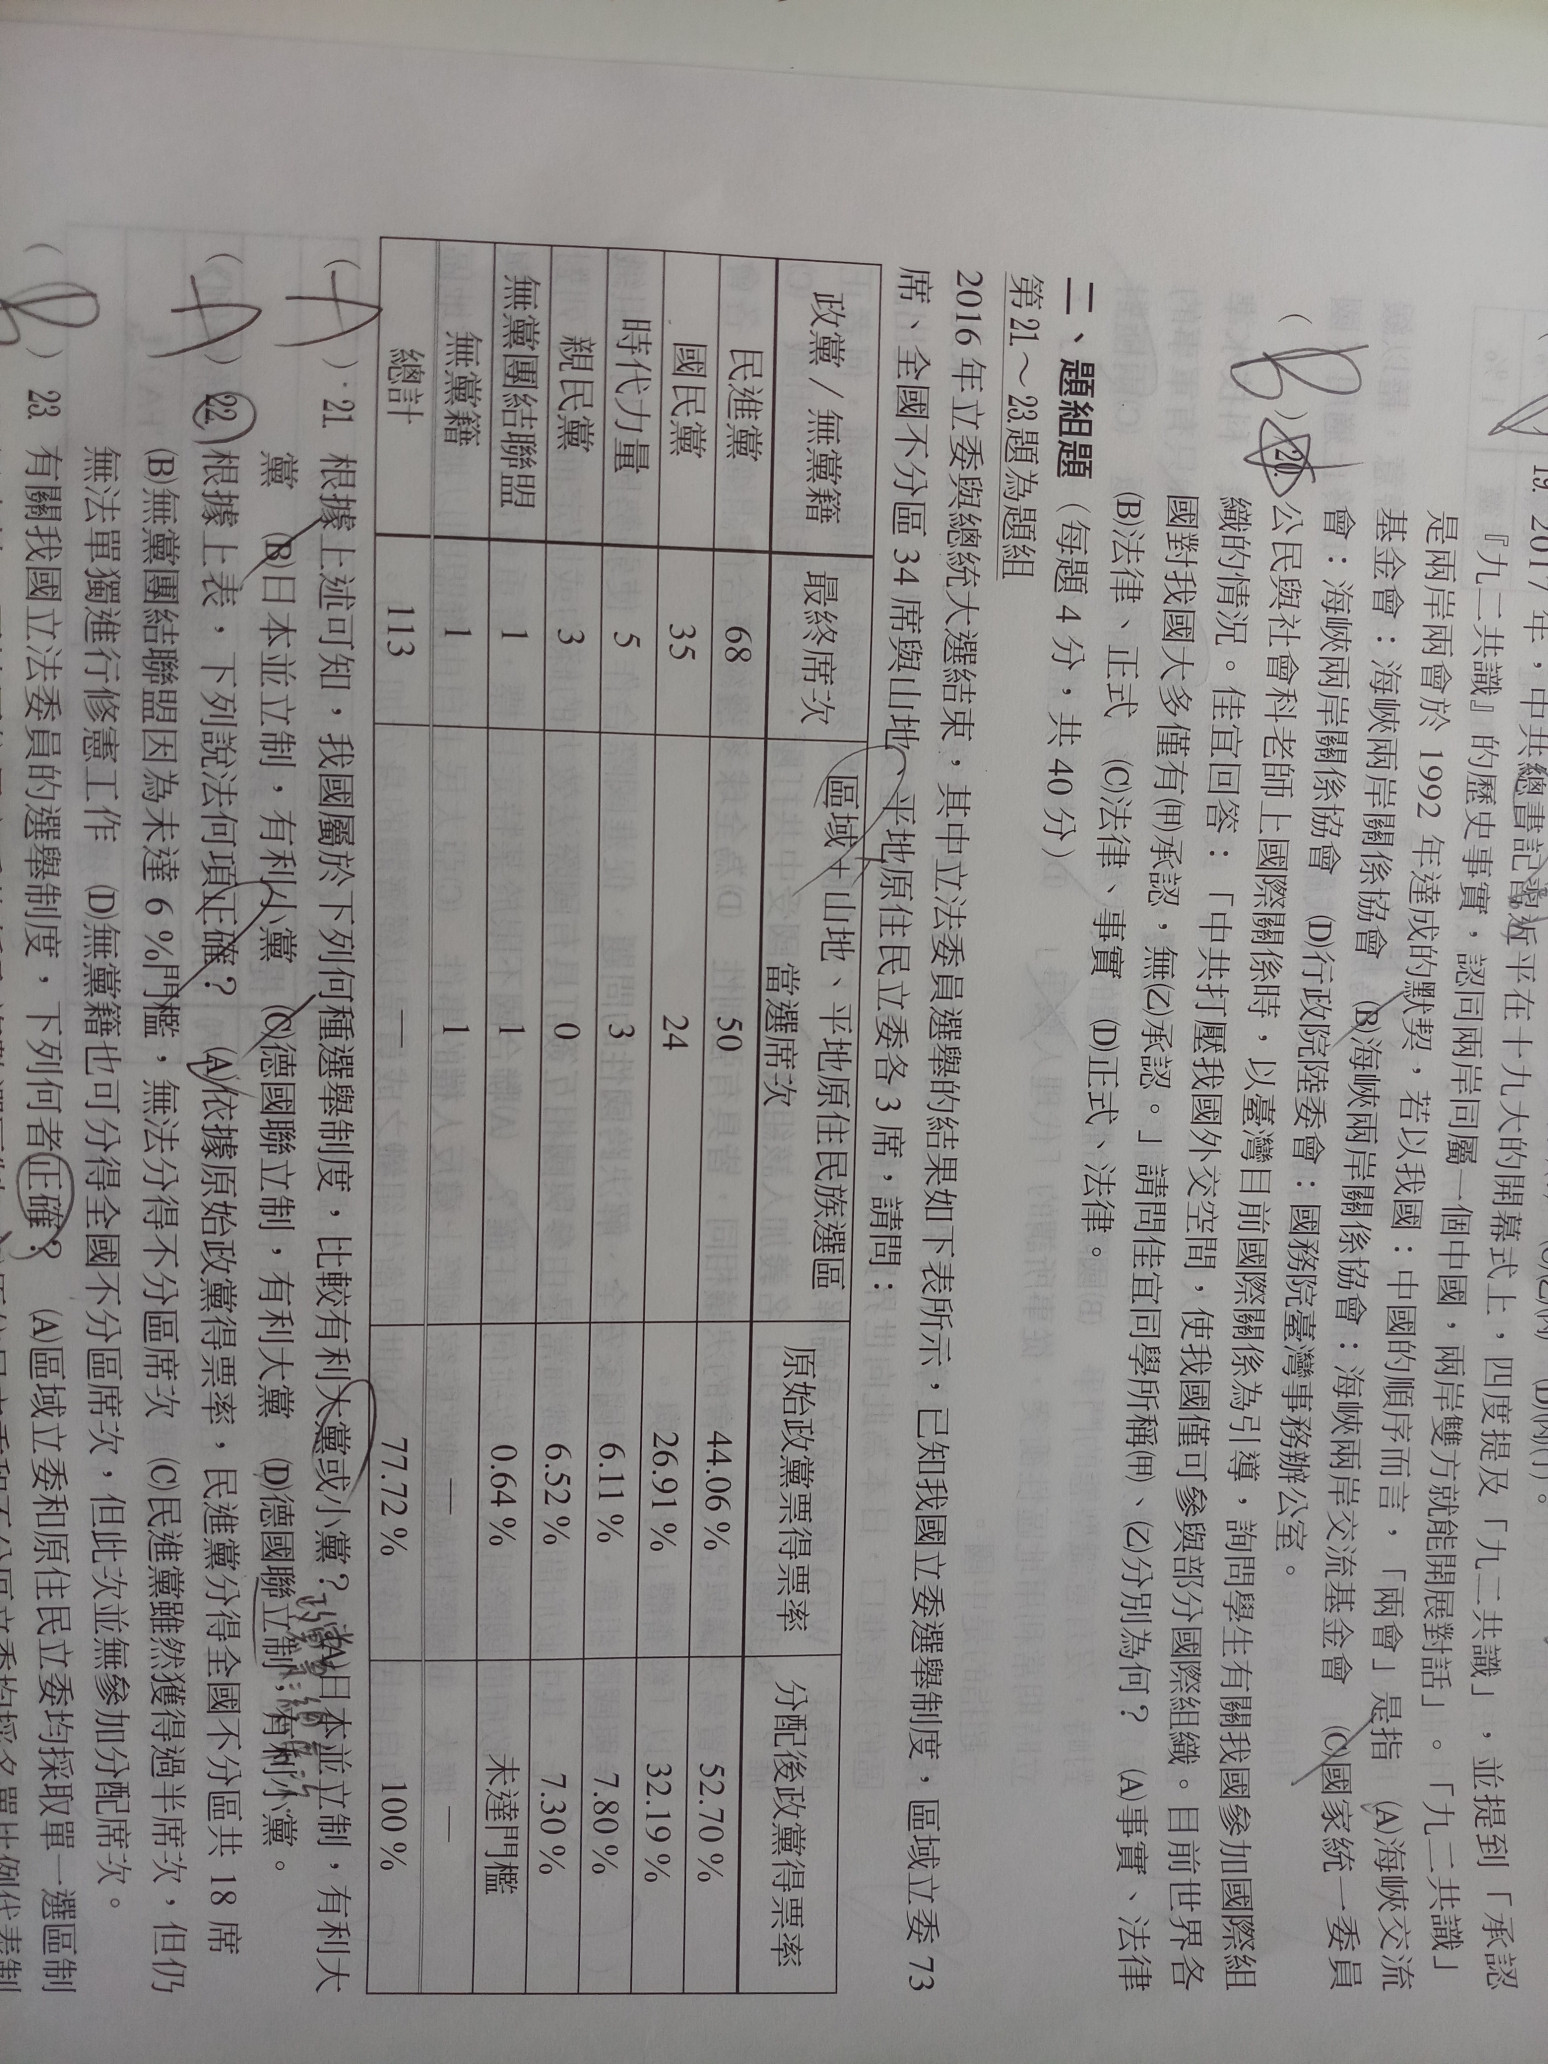 19. 2017 年，中共總書記習近平在十九大的開幕式上，四度提及「九二共識」，並提到「承認
『九二共識』的歷史事實，認同兩岸同屬一個中國，兩岸雙方就能開展對話」。「九二共識」
是兩岸兩會於 1992 年達成的默契，若以我國：中國的順序而言，「兩會」是指 (A)海峽交流
基金會：海峽兩岸關係協會 (B)海峽兩岸關係協會：海峽兩岸交流基金會 (C)國家統一委員
會：海峽兩岸關係協會 (D)行政院陸委會：國務院臺灣事務辦公室。
( B ) 20. 公民與社會科老師上國際關係時，以臺灣目前國際關係為引導，詢問學生有關我國參加國際組
織的情況。佳宜回答：「中共打壓我國外交空間，使我國僅可參與部分國際組織。目前世界各
國對我國大多僅有(甲)承認，無(乙)承認。」請問佳宜同學所稱(甲)、(乙)分別為何？ (A)事實、法律
(B)法律、正式 (C)法律、事實 (D)正式、法律。
二、題組題（每題 4 分，共 40 分）
第 21～23 題為題組
2016 年立委與總統大選結束，其中立法委員選舉的結果如下表所示，已知我國立委選舉制度，區域立委 73
席、全國不分區 34 席與山地、平地原住民立委各 3 席，請問：
政黨／無黨籍 最終席次 區域＋山地、平地原住民族選區當選席次 原始政黨票得票率 分配後政黨得票率
民進黨 68 50 44.06 % 52.70 %
國民黨 35 24 26.91 % 32.19 %
時代力量 5 3 6.11 % 7.80 %
親民黨 3 0 6.52 % 7.30 %
無黨團結聯盟 1 1 0.64 % 未達門檻
無黨籍 1 1 — —
總計 113 — 77.72 % 100 %
( A ) 21. 根據上述可知，我國屬於下列何種選舉制度，比較有利大黨或小黨？ (A)日本並立制，有利大
黨 (B)日本並立制，有利小黨 (C)德國聯立制，有利大黨 (D)德國聯立制，有利小黨。
( A ) 22. 根據上表，下列說法何項正確？ (A)依據原始政黨得票率，民進黨分得全國不分區共 18 席
(B)無黨團結聯盟因為未達 6 %門檻，無法分得不分區席次 (C)民進黨雖然獲得過半席次，但仍
無法單獨進行修憲工作 (D)無黨籍也可分得全國不分區席次，但此次並無參加分配席次。
( B ) 23. 有關我國立法委員的選舉制度，下列何者正確？ (A)區域立委和原住民立委均採取單一選區制